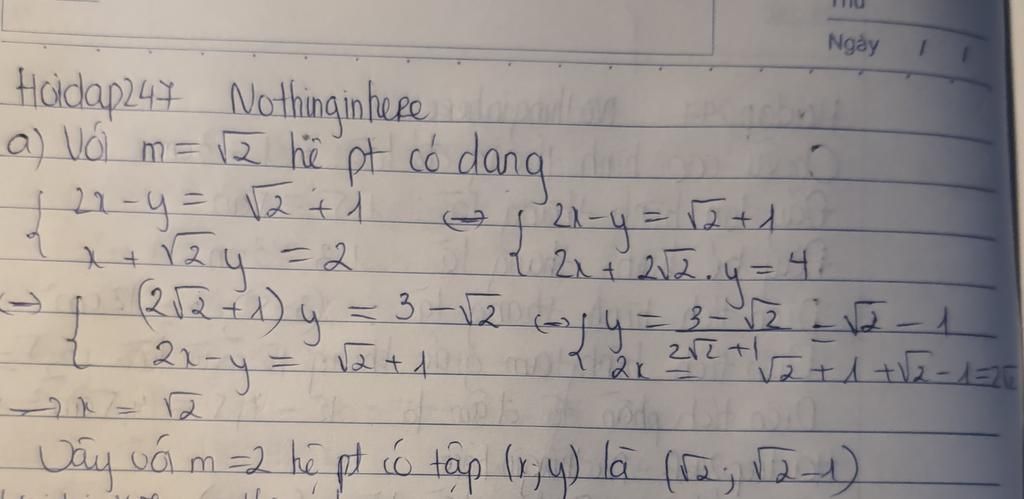 Thứ
Ngày / /
Hoidap247 Nothinginhere
a) Với m = √2 hệ pt có dạng
{ 2x - y = √2 + 1 ⇔ { 2x - y = √2 + 1
x + √2y = 2 2x + 2√2 . y = 4
⇔ { (2√2 + 1) y = 3 - √2 ⇔ { y = (3 - √2)/(2√2 + 1) = √2 - 1
2x - y = √2 + 1 2x = √2 + 1 + √2 - 1 = 2√2
→ x = √2
Vậy với m = 2 hệ pt có tập (x;y) là (√2; √2 - 1)